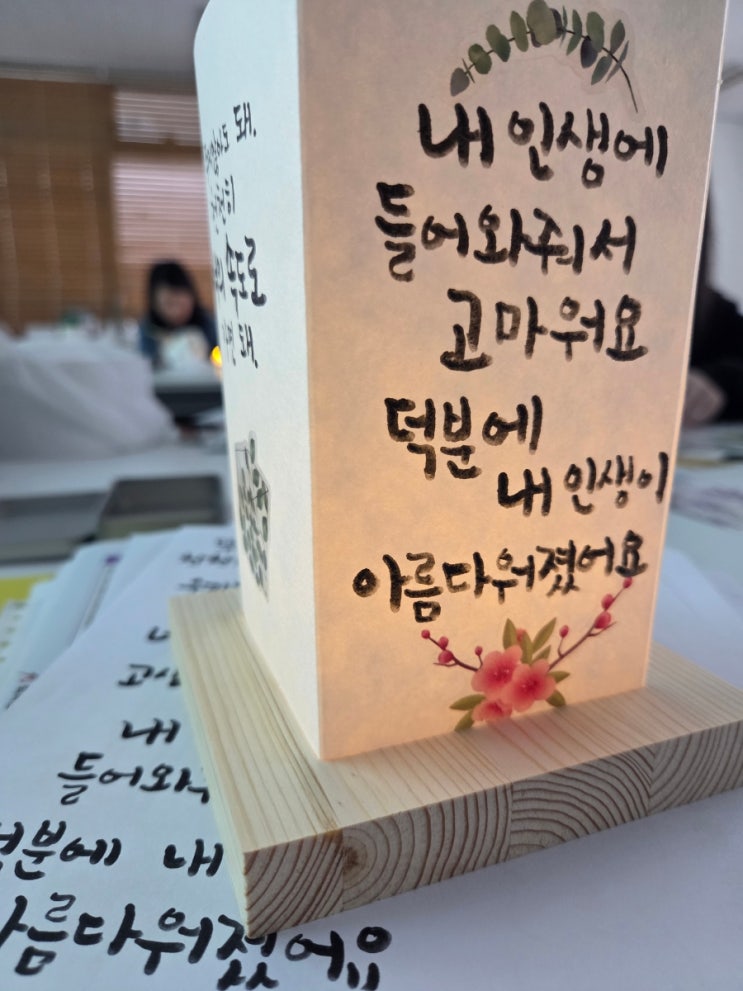 내 인생에
들어와줘서
고마워요
덕분에
내 인생이
아름다워졌어요
돼.
천천히
속도로
돼.
내
들어와
덕분에 내
아름다워졌어요